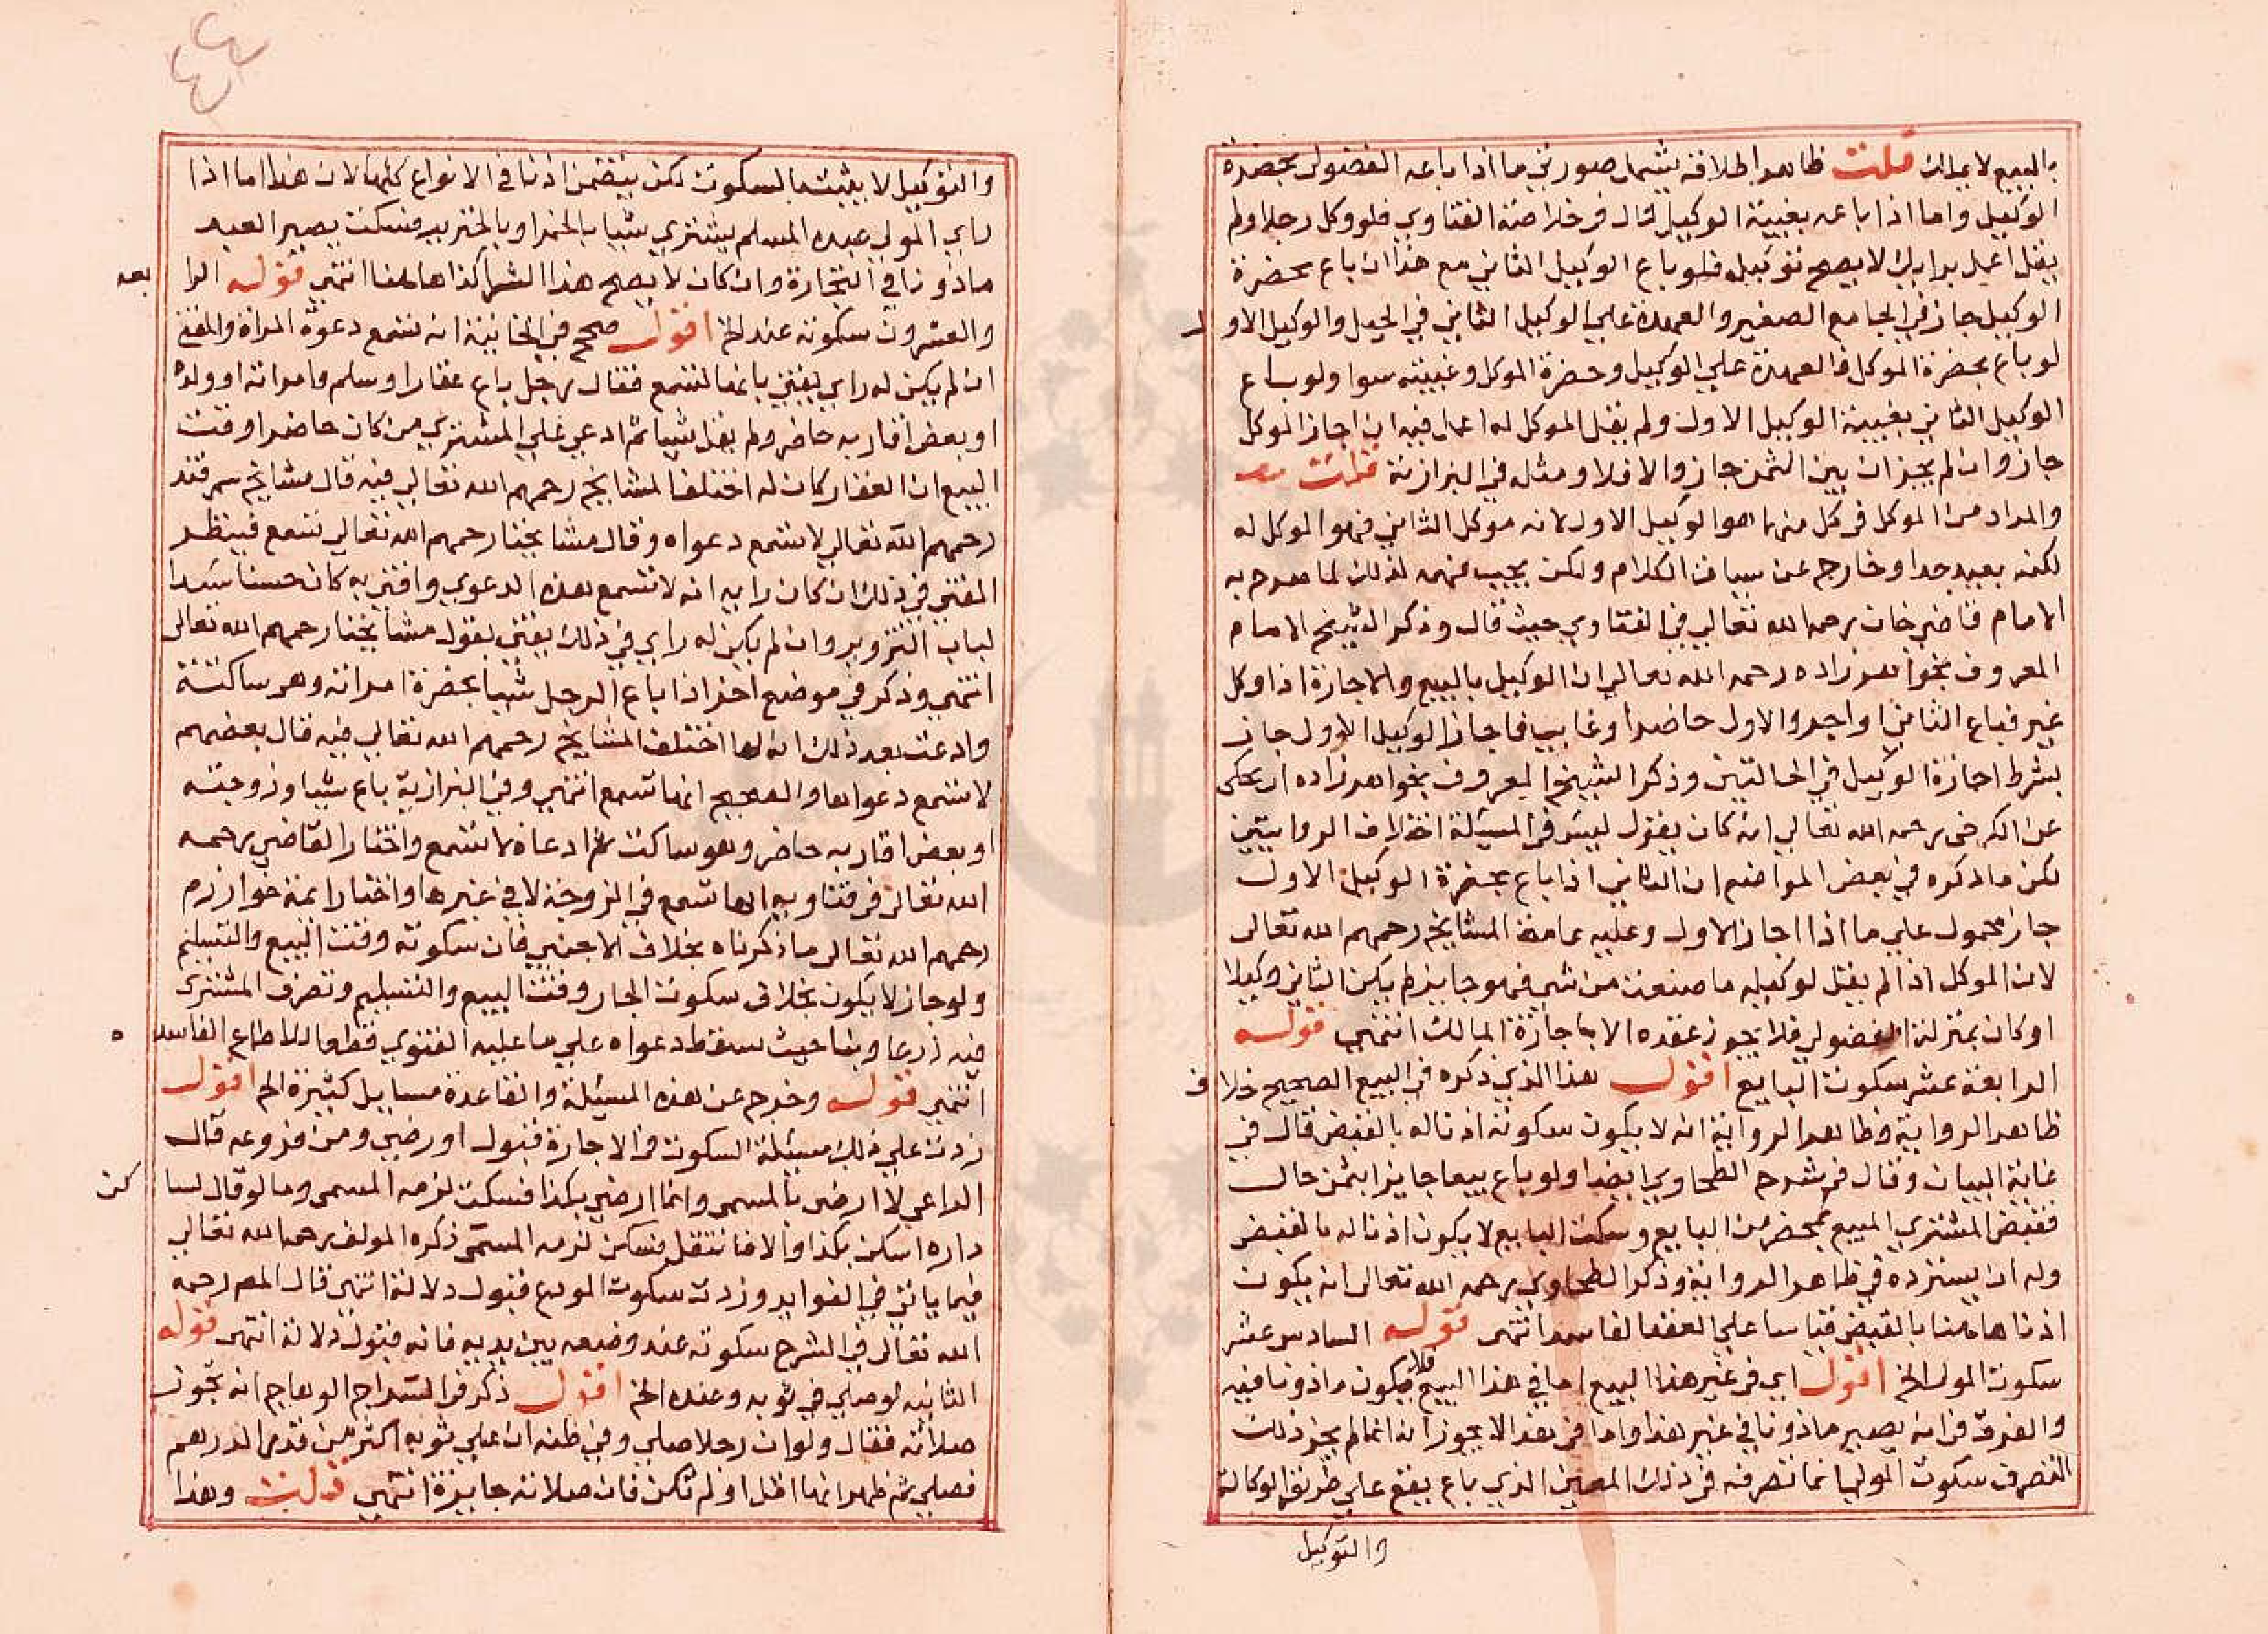 بالبيع لا يملك قلت ظاهر اطلاقه يشمل صورتين ما اذا باعه الفضولي بحضرة
الوكيل واما اذا باعه بغيبة الوكيل قال في خلاصة الفتاوي فلو وكل رجلا ولم
يقل اعمل برايك لا يصح توكيله فلو باع الوكيل الثاني مع هذا ان باع بحضرة
الوكيل جاز في الجامع الصغير والعهدة علي الوكيل الثاني في الحيل والوكيل الاول
لو باع بحضرة الموكل فالعهدة علي الوكيل وحضرة الموكل وغيبته سوا ولو باع
الوكيل الثاني بغيبة الوكيل الاول ولم يقل الموكل له اعمل فيه ان اجاز الموكل
جاز وان لم يجز ان بين الثمن جاز والا فلا ومثله في البزازية قلت
والمراد من الموكل في كل منهما هو الوكيل الاول لانه موكل الثاني فهو الموكل له
لكنه بعيد جدا وخارج عن سياق الكلام ولكن يجب فهمه لذلك لما صرح به
الامام قاضي خان رحمه الله تعالي في الفتاوي حيث قال وذكر الشيخ الامام
المعروف بخواهر زاده رحمه الله تعالي ان الوكيل بالبيع والاجارة اذا وكل
غيره فباع الثاني او اجر والاول حاضر او غايب فاجاز الوكيل الاول جاز
بشرط اجازة الوكيل في الحالتين وذكر الشيخ المعروف بخواهر زاده يحكي
عن الكرخي رحمه الله تعالي انه كان يقول ليس في المسئلة اختلاف الروايتين
لكن ما ذكره في بعض المواضع ان الثاني اذا باع بحضرة الوكيل الاول
جاز محمول علي ما اذا اجاز الاول وعليه عامة المشايخ رحمهم الله تعالي
لان الموكل اذا لم يقل لوكيله ما صنعت من شي فهو جايز لم يكن الثاني وكيلا
او كان بمنزلة الفضولي فلا يجوز عقده الا باجازة المالك انتهي قوله
الرابعة عشر سكوت البايع اقول هذا الذي ذكره في البيع الصحيح خلاف
ظاهر الرواية وظاهر الرواية انه لا يكون سكوته اذنا له بالقبض قال في
غاية البيان وقال في شرح الطحاوي ايضا ولو باع بيعا جايزا بثمن حال
فقبض المشتري المبيع بمحضر من البايع وسكت البايع لا يكون اذنا له بالقبض
وله ان يسترده في ظاهر الرواية وذكر الطحاوي رحمه الله تعالي انه يكون
اذنا هاهنا بالقبض قياسا علي العقد الفاسد انتهي قوله السادس عشر
سكوت المولي الخ اقول اي في غير هذا البيع اما في هذا البيع فلا يكون ماذونا فيه
والفرق في انه يصير ماذونا في غير هذا واما في هذا لا يجوز انه انما لم يجز ذلك
التصرف سكوت المولي انما تصرفه في ذلك المعين الذي باع يقع علي طريق الوكالة
والتوكيل
٤٤
والتوكيل لا يثبت بالسكوت لكن يتضمن اذنا في الانواع كلها لان هذا اما اذا
راي المولي عبده المسلم يشتري شيا بالخمر او بالخنزير فسكت يصير العبد
ماذونا في التجارة وان كان لا يصح هذا الشرا كذا هاهنا انتهي قوله الرابعه
والعشرون سكوته عند الخ اقول صحح في الخانية انه تسمع دعوة المراة والمفتي
ان لم يكن له راي يفتي بانها تسمع فقال رجل باع عقارا وسلم وامراته او ولده
او بعض اقاربه حاضر ولم يقل شيا ثم ادعي علي المشتري من كان حاضرا وقت
البيع ان العقار كان له اختلف المشايخ رحمهم الله تعالي فيه قال مشايخ سمرقند
رحمهم الله تعالي لا تسمع دعواه وقال مشايخنا رحمهم الله تعالي تسمع فينظر
المفتي في ذلك ان كان رايه انه لا تسمع هذه الدعوي وافتي به كان حسنا سدا
لباب التزوير وان لم يكن له راي في ذلك يفتي بقول مشايخنا رحمهم الله تعالي
انتهي وذكر في موضع اخر اذا باع الرجل شيا بحضرة امراته وهي ساكتة
وادعت بعد ذلك انه لها اختلف المشايخ رحمهم الله تعالي فيه قال بعضهم
لا تسمع دعواها والصحيح انها تسمع انتهي وفي البزازية باع شيا وزوجته
او بعض اقاربه حاضر وهو ساكت ثم ادعاه لا تسمع واختار القاضي رحمه
الله تعالي في فتاويه انها تسمع في الزوجة لا في غيرها واختار ايمة خوارزم
رحمهم الله تعالي ما ذكرناه بخلاف الاجنبي فان سكوته وقت البيع والتسليم
ولو جاز لا يكون بخلاف سكوت الجار وقت البيع والتسليم وتصرف المشتري
فيه زرعا وبنا حيث سقط دعواه علي ما عليه الفتوي قطعا للاطماع الفاسده
انتهي قوله وخرج عن هذه المسئلة والقاعدة مسايل كثيرة الخ اقول
زدت علي ذلك مسئلة السكوت في الاجارة قبول او رضي ومن فروعه قال
الراعي لا ارضي بالمسمي وانما ارضي بكذا فسكت لزمه المسمي وما لو قال لساكن
داره اسكن بكذا والا فانتقل فسكن لزمه المسمي ذكره المولف رحمه الله تعالي
فيما ياتي في الفوايد وزدت سكوت المودع قبول دلالة انتهي قال المص رحمه
الله تعالي في الشرح سكوته عند وضعه بين يديه فانه قبول دلالة انتهي قوله
الثانيه لو صلي في ثوبه وعنده الخ اقول ذكر في السراج الوهاج انه تجوز
صلاته فقال ولو ان رجلا صلي وفي ظنه ان علي ثوبه اكثر من قدر الدرهم
فصلي ثم ظهر انها اقل او لم تكن فان صلاته جايزة انتهي قلت وهذا